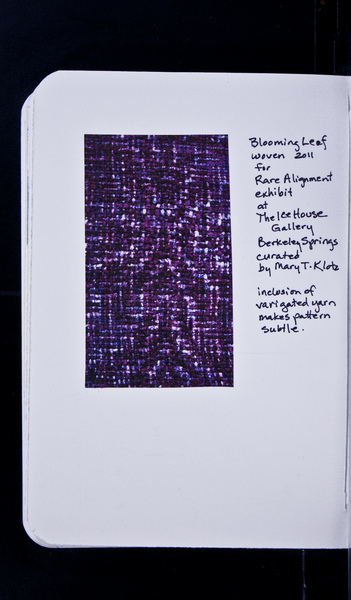 Blooming Leaf
woven 2011
for
Rare Alignment
exhibit
at
The Ice House
Gallery
Berkeley Springs
curated
by Mary T. Klotz
inclusion of
varigated yarn
makes pattern
subtle.